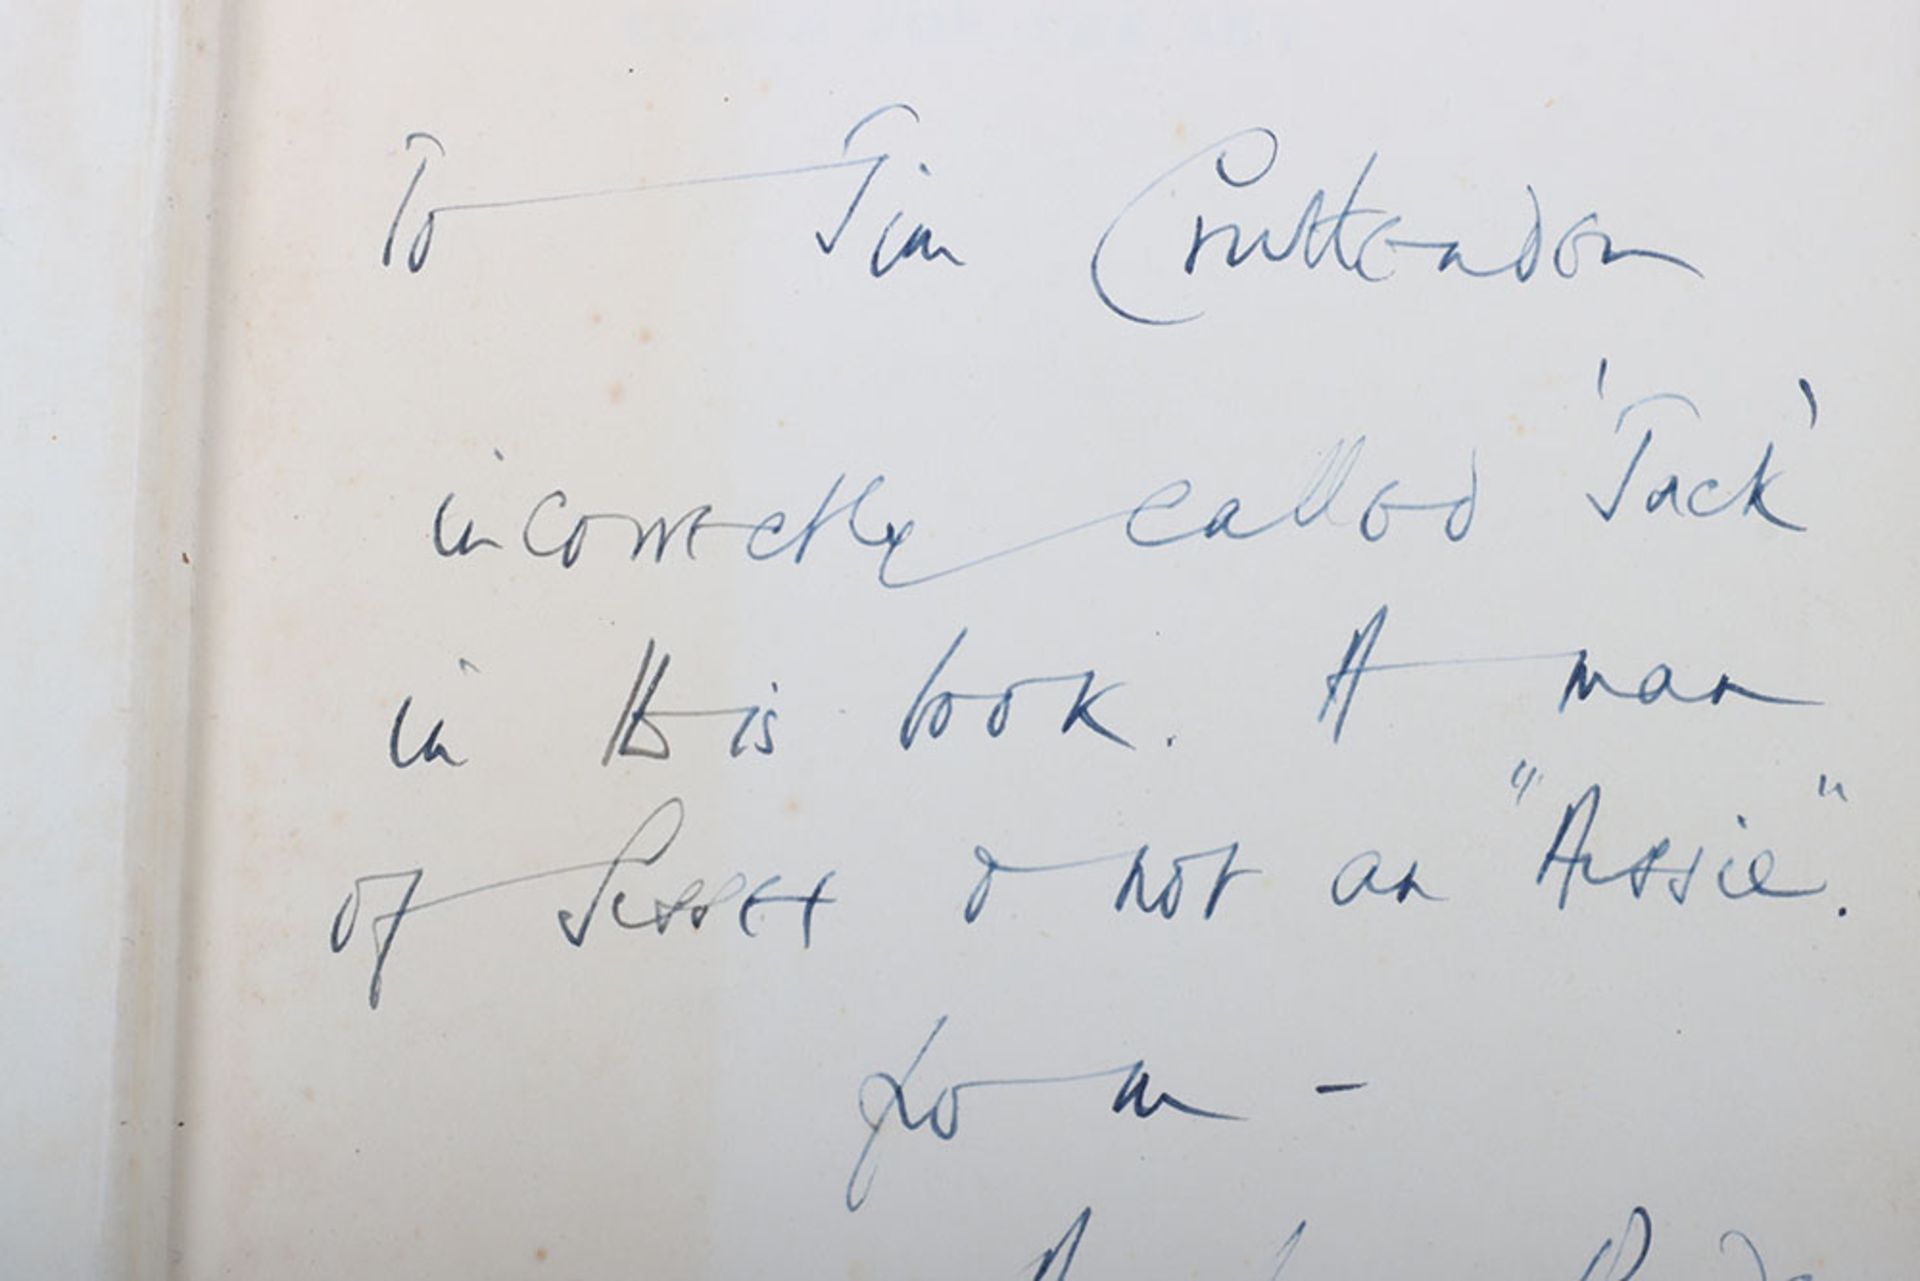 To Jim Cruttendon
incorrectly called 'Jack'
in this book. A man
of Sussex & not an "Aussie".
from -